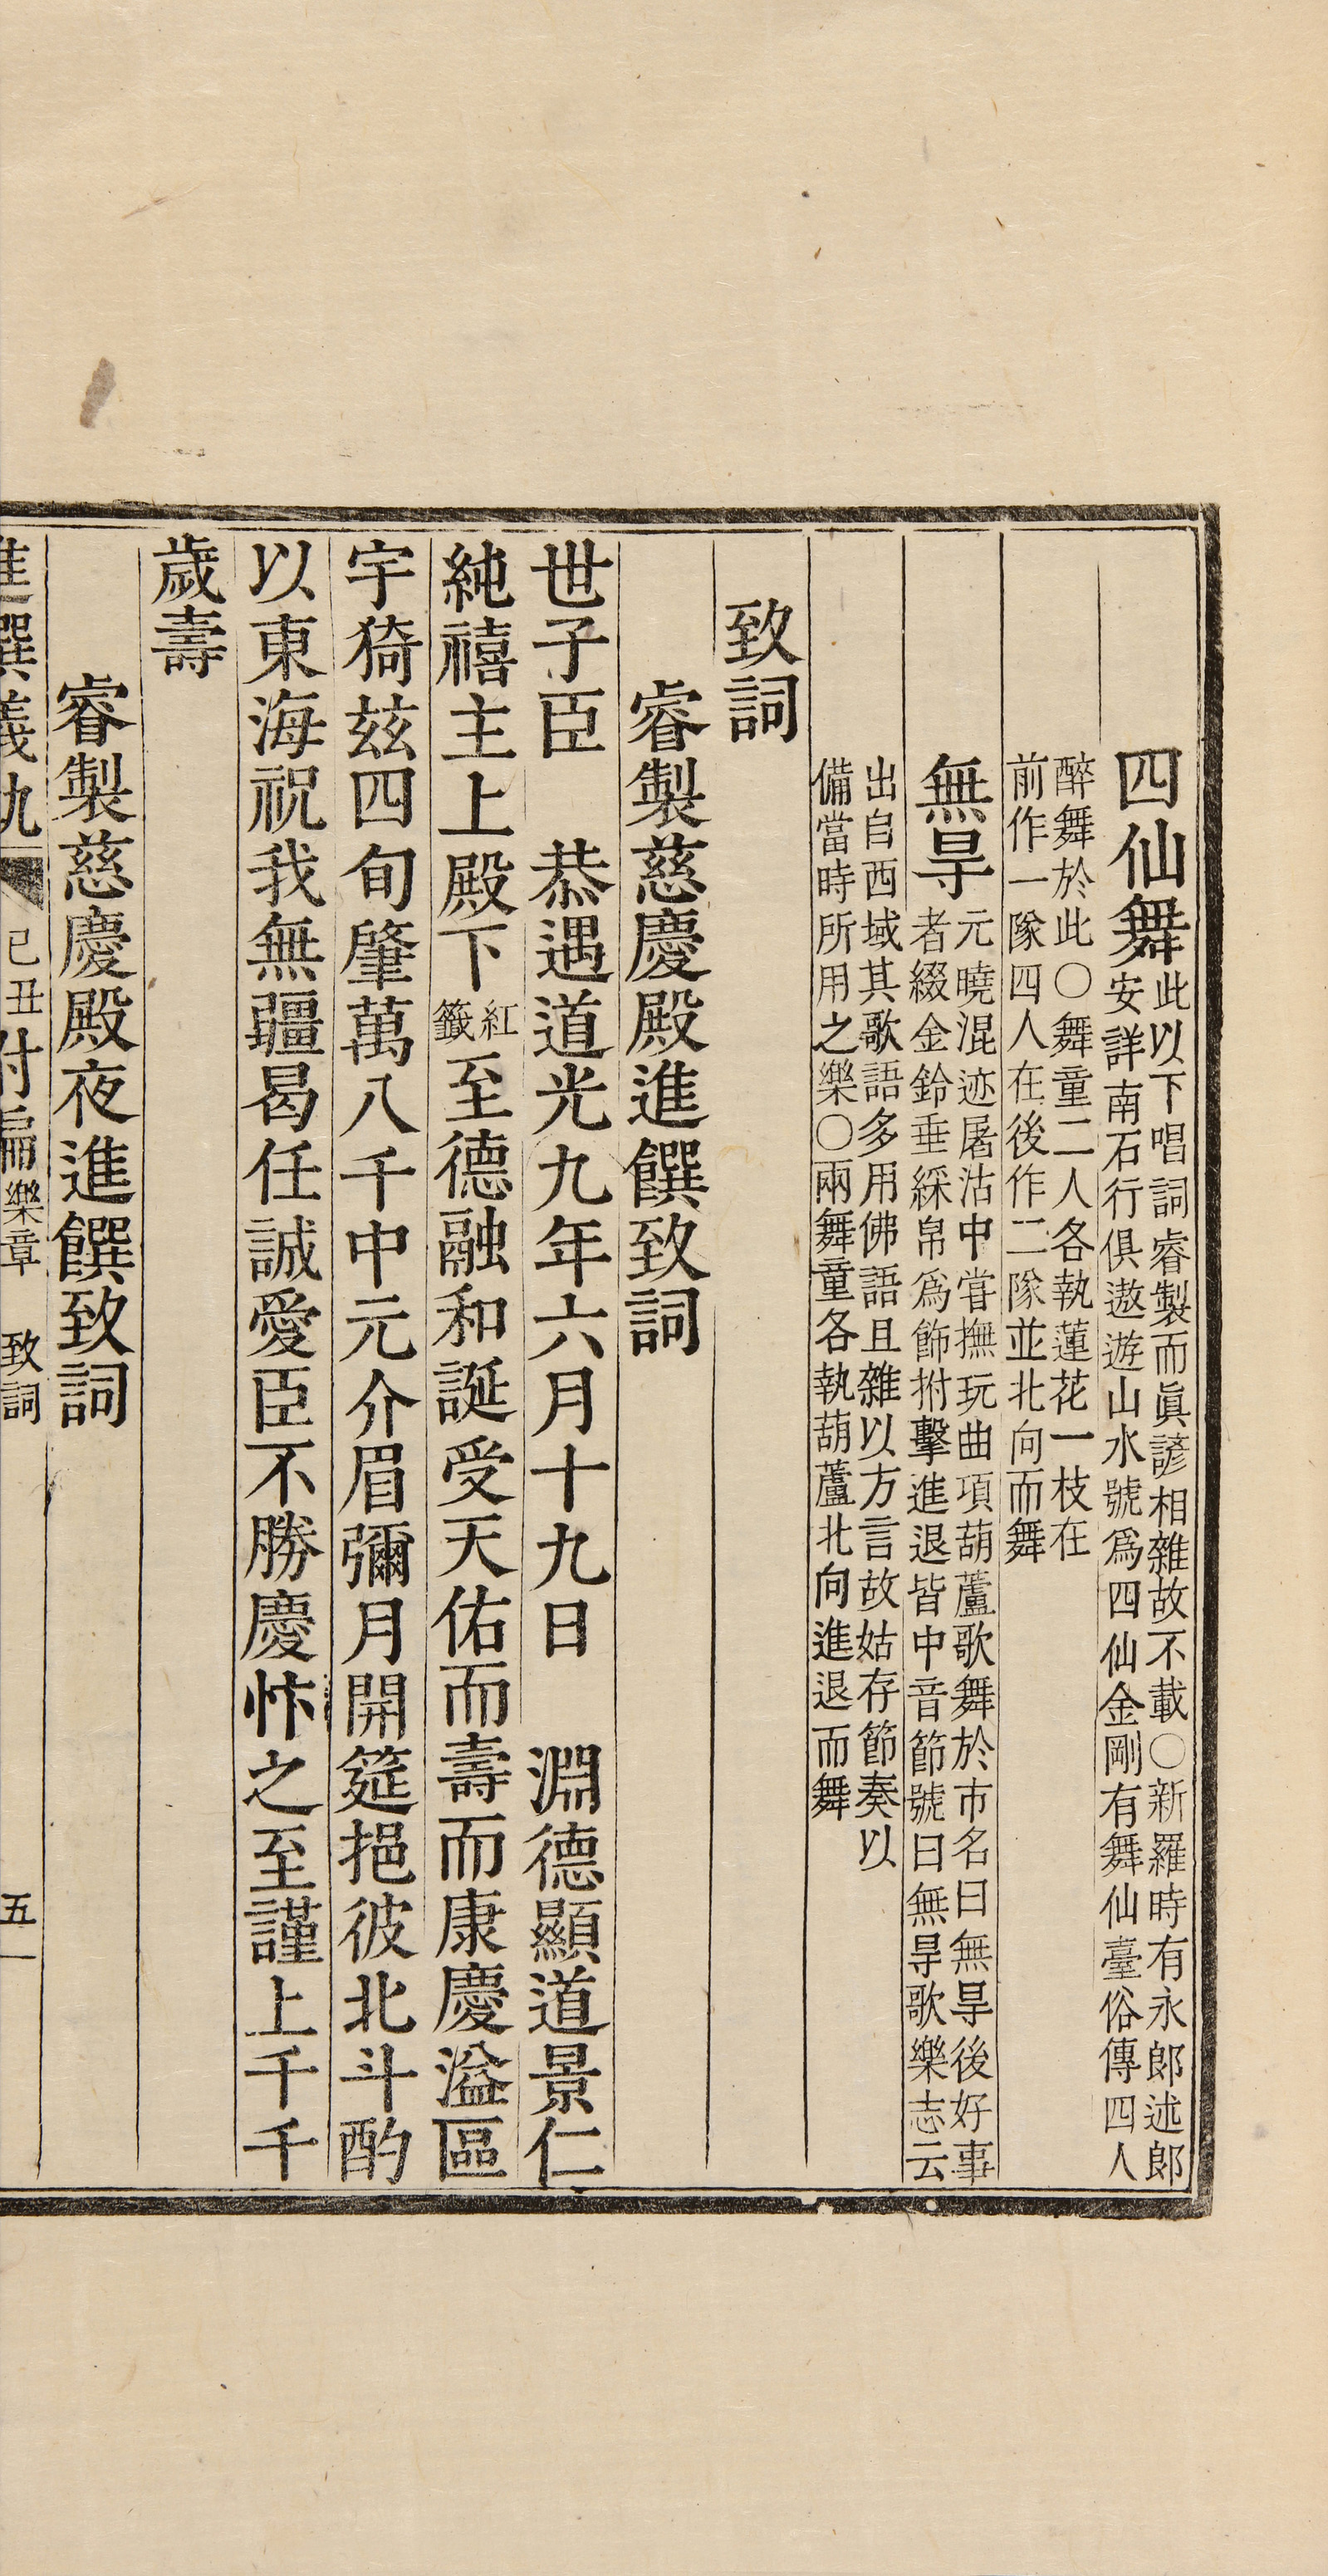 四仙舞此以下唱詞睿製而眞諺相雜故不載〇新羅時有永郎述郎
安詳南石行俱遨遊山水號爲四仙金剛有舞仙臺俗傳四人
醉舞於此〇舞童二人各執蓮花一枝在
前作一隊四人在後作二隊並北向而舞
無㝵元曉混迹屠沽中甞撫玩曲項葫蘆歌舞於市名曰無㝵後好事
者綴金鈴垂綵帛爲飾拊擊進退皆中音節號曰無㝵歌樂志云
出自西域其歌語多用佛語且雜以方言故姑存節奏以
備當時所用之樂〇兩舞童各執葫蘆北向進退而舞
致詞
睿製慈慶殿進饌致詞
世子臣　恭遇道光九年六月十九日　淵德顯道景仁
純禧主上殿下紅籤至德融和誕受天佑而壽而康慶溢區
宇猗玆四旬肇萬八千中元介眉彌月開筵挹彼北斗酌
以東海祝我無疆曷任誠愛臣不勝慶忭之至謹上千千
歲壽
睿製慈慶殿夜進饌致詞
進饌儀軌 己丑 附編 樂章 致詞 五一